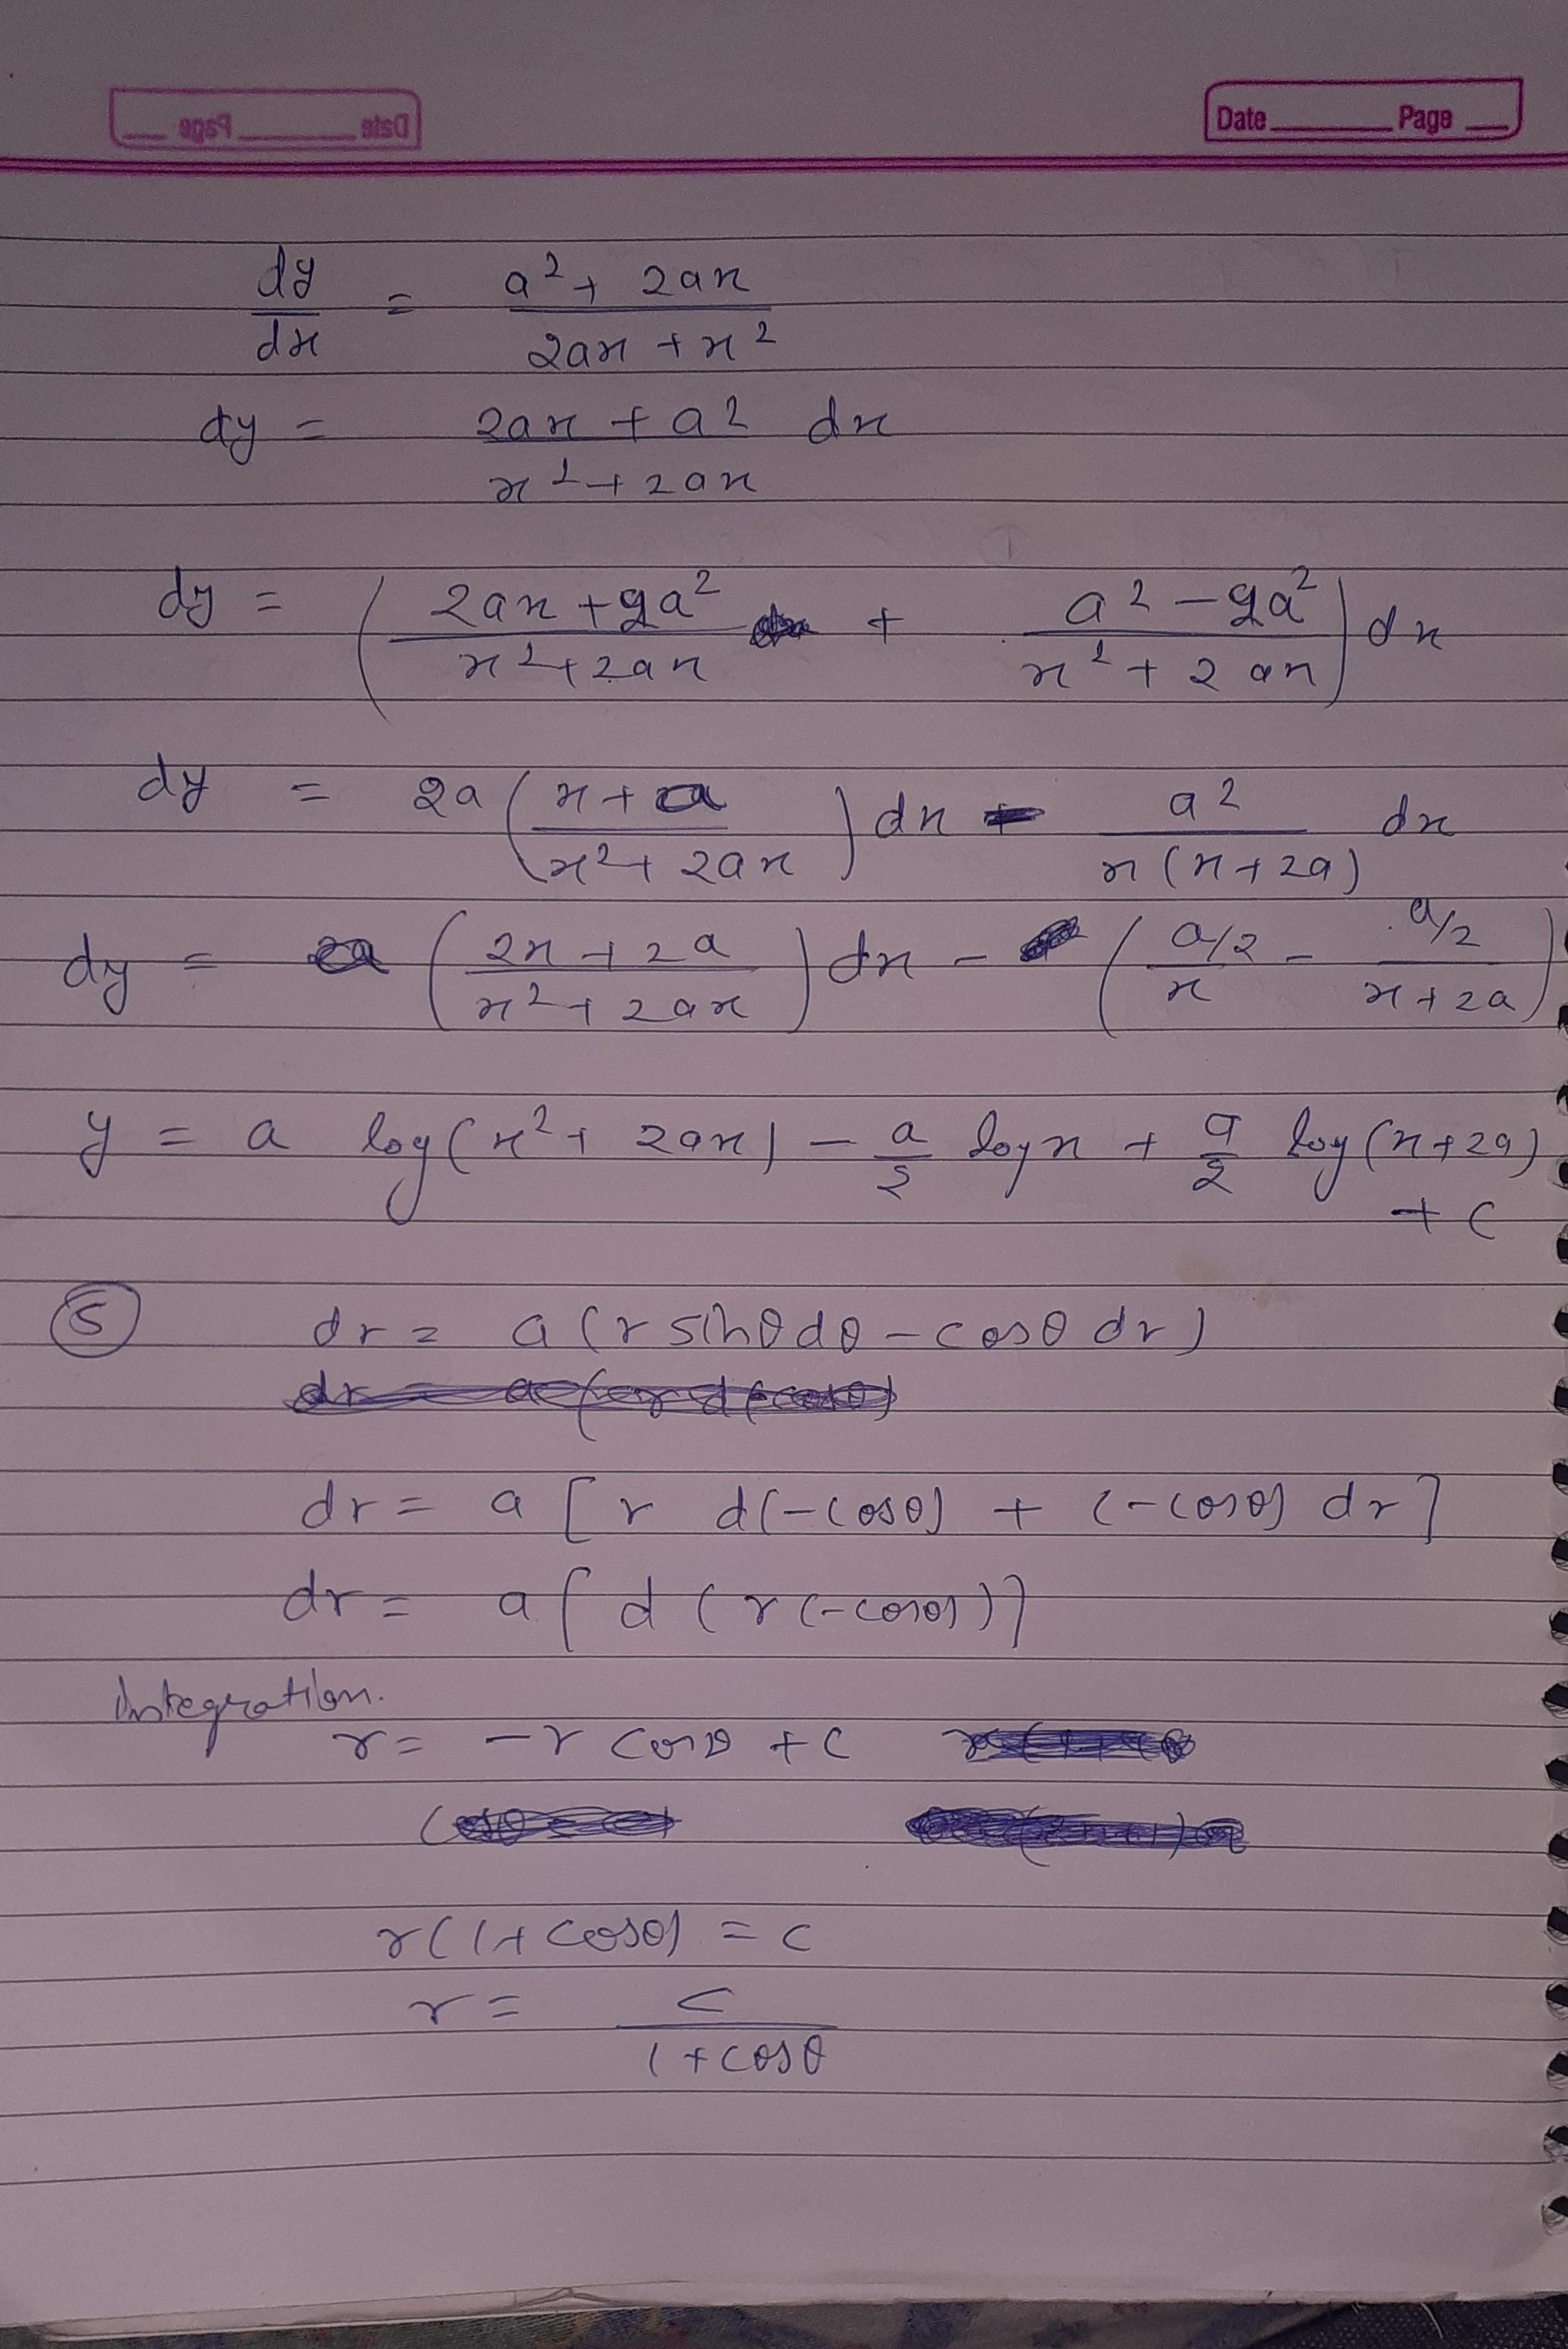 Date Page
dy/dx = (a² + 2ax)/(2ax + x²)
dy = (2ax + a²)/(x² + 2ax) dx
dy = ((2ax + 2a²)/(x² + 2ax) + (a² - 2a²)/(x² + 2ax)) dx
dy = 2a ((x + a)/(x² + 2ax)) dx - a²/(x(x + 2a)) dx
dy = a ((2x + 2a)/(x² + 2ax)) dx - ((a/2)/x - (a/2)/(x + 2a))
y = a log(x² + 2ax) - a/2 log x + a/2 log(x + 2a)
+ c
⑤ dr = a(r sinθ dθ - cosθ dr)
dr = a [r d(-cosθ) + (-cosθ) dr]
dr = a [d (r(-cosθ))]
Integration.
r = -r cosθ + c
r(1 + cosθ) = c
r = c/(1 + cosθ)